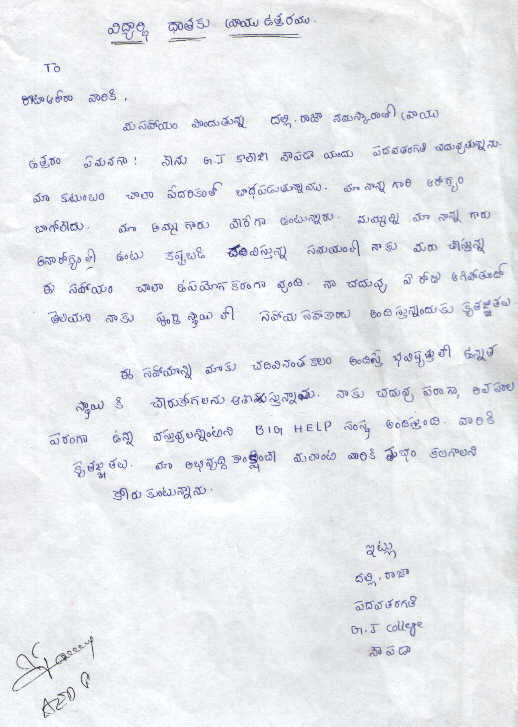 విద్యార్థి దాతకు వ్రాయు ఉత్తరము.
To
వారికి,
మీ సహాయం పొందుతున్న దల్లి. రాజా నమస్కారాలతో వ్రాయు
ఉత్తరం ఏమనగా! నేను G.J కాలేజి నౌపడా యందు పదవతరగతి చదువుతున్నాను.
మా కుటుంబం చాలా పేదరికంతో బాధపడుతున్నాము. మా నాన్న గారి ఆరోగ్యం
బాగోలేదు. మా అమ్మ గారు వేరేగా ఉంటున్నారు. మమ్మల్ని మా నాన్న గారు
అనారోగ్యంతో ఉంటు కష్టబడి చదివిస్తున్న సమయంలో నాకు మీరు చేస్తున్న
ఈ సహాయం చాలా ఉపయోగకరంగా వుంది. నా చదువు ఏ రోజు ఆగిపోతుందో
తెలియని నాకు పూర్తి స్థాయి లో సహాయ సహకారాలు అందిస్తున్నందుకు కృతజ్ఞతలు.
ఈ సహాయాన్ని మాకు చదివినంతకాలం అందిస్తే భవిష్యత్తులో ఉన్నత
స్థాయి కి చేరుతోగలను ఆశిస్తున్నాను. నాకు చదువు పరంగా, అవసరాల
పరంగా ఉన్న వస్తువులన్నింటిని BIG HELP సంస్థ అందిస్తుంది. వారికి
కృతజ్ఞతలు. మా అభివృద్ధి కాంక్షించే మీలాంటి వారికి శుభం కలగాలని
కోరుకుంటున్నాను.
ఇట్లు
దల్లి. రాజా
పదవతరగతి
G.J College
నౌపడా